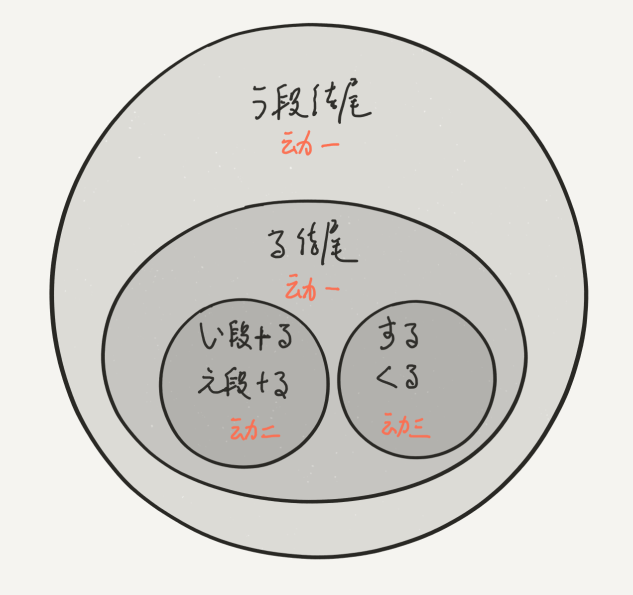 う段结尾
动一
る结尾
动一
い段+る
え段+る
动二
する
くる
动三